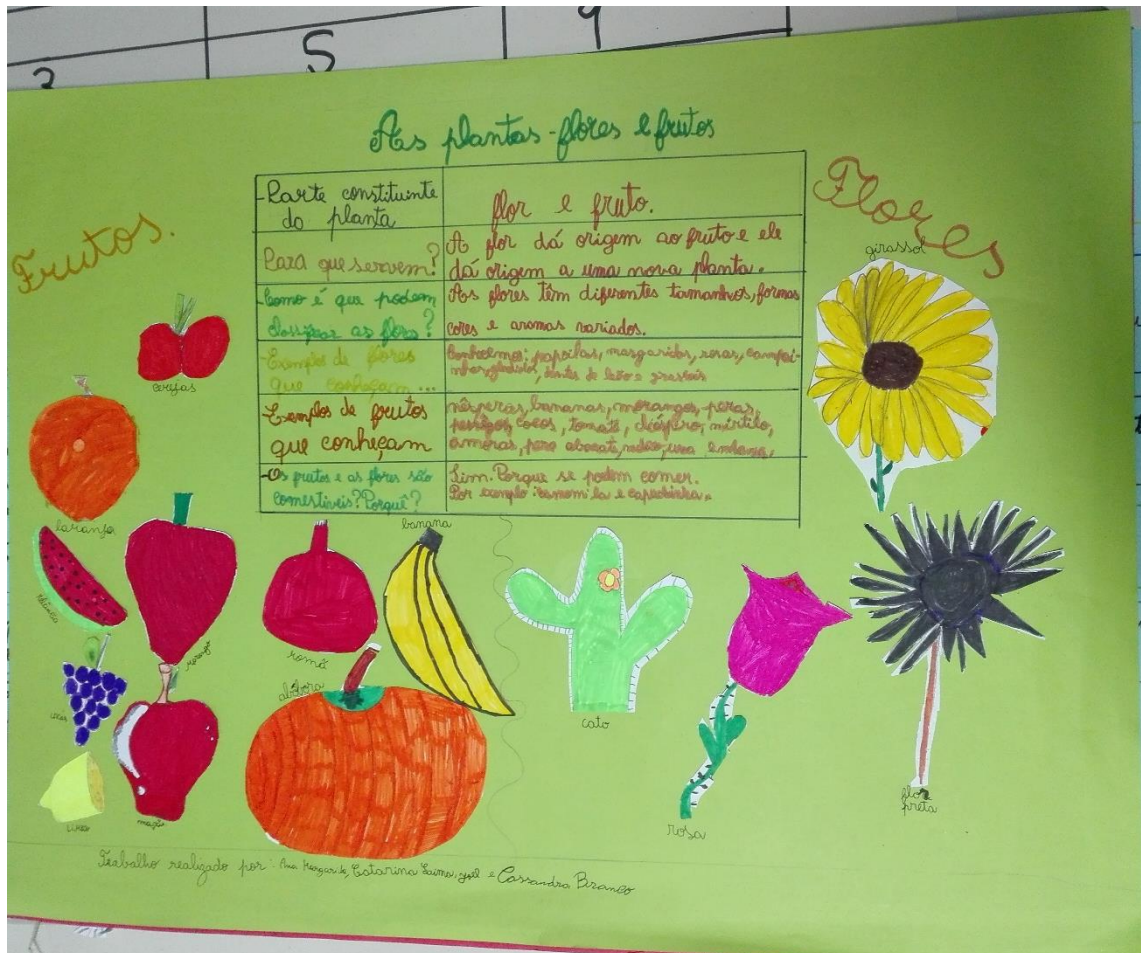 5
As plantas - flores e frutos
Frutos.
Flores
-Parte constituinte
do planta
flor e fruto.
Para que servem?
A flor dá origem ao fruto e ele
dá origem a uma nova planta.
-Como é que podem
classificar as flores?
As flores têm diferentes tamanhos, formas
cores e aromas variados.
-Exemplos de flores
que conheçam ...
Conhecemos: papoilas, margaridas, rosas, campai-
nhas, gladíolos, dentes de leão e girassóis
-Exemplos de frutos
que conheçam
nêsperas, bananas, morangos, peras,
pessegos, cocos, tomate, dióspiro, mirtilo,
amoras, pera abacate, melão, uva
-Os frutos e as flores são
comestíveis? Porquê?
Sim. Porque se podem comer.
Por exemplo: camomila e capuchinha.
girassol
cerejas
laranja
banana
morango
romã
abóbora
uvas
maçã
cato
rosa
flor
preta
Trabalho realizado por: Ana Margarida, Catarina e Cassandra Branco